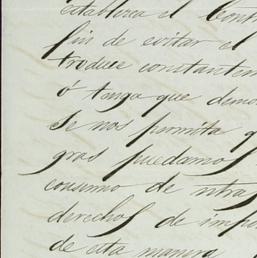 establezca el Cont
fin de evitar el
troduce constantem
ó tenga que demo
se nos permita q
gras puedamos
consumo de ntra
derechos de impo
de esta manera